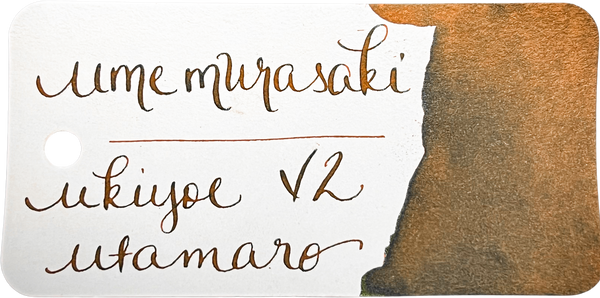 ume murasaki
ukiyoe V2
utamaro